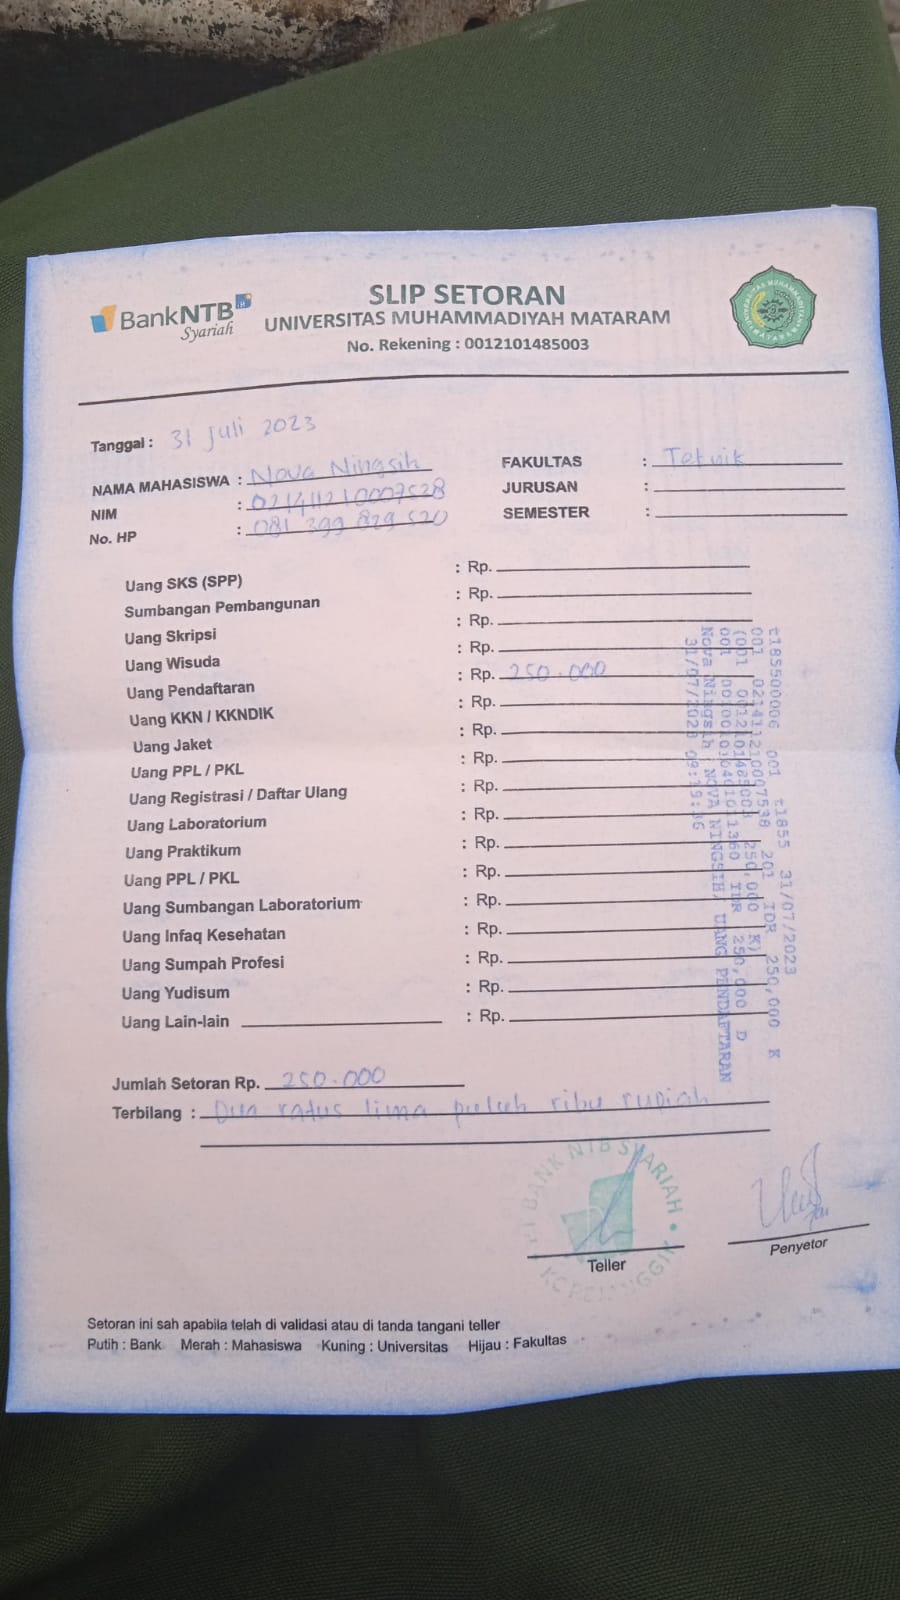 BankNTB
Syariah
SLIP SETORAN
UNIVERSITAS MUHAMMADIYAH MATARAM
No. Rekening : 0012101485003
Tanggal : 31 Juli 2023
NAMA MAHASISWA : Nova Ningsih
NIM : 021411210007528
No. HP : 081 399 829 520
FAKULTAS : Teknik
JURUSAN :
SEMESTER :
Uang SKS (SPP) : Rp.
Sumbangan Pembangunan : Rp.
Uang Skripsi : Rp.
Uang Wisuda : Rp.
Uang Pendaftaran : Rp. 250.000
Uang KKN / KKNDIK : Rp.
Uang Jaket : Rp.
Uang PPL / PKL : Rp.
Uang Registrasi / Daftar Ulang : Rp.
Uang Laboratorium : Rp.
Uang Praktikum : Rp.
Uang PPL / PKL : Rp.
Uang Sumbangan Laboratorium : Rp.
Uang Infaq Kesehatan : Rp.
Uang Sumpah Profesi : Rp.
Uang Yudisum : Rp.
Uang Lain-lain : Rp.
t185500006 001 t1855 31/07/2023
001 021411210007538 201 IDR 250,000 K
(001 0012101485003 250,000 K)
001 IDR 250,000 D
Nova Ningsih : NOVA NINGSIH, UANG PENDAFTARAN
31/07/2023 09:19:36
Jumlah Setoran Rp. 250.000
Terbilang : Dua ratus lima puluh ribu rupiah
BANK NTB SYARIAH
Teller
Penyetor
Setoran ini sah apabila telah di validasi atau di tanda tangani teller
Putih : Bank Merah : Mahasiswa Kuning : Universitas Hijau : Fakultas